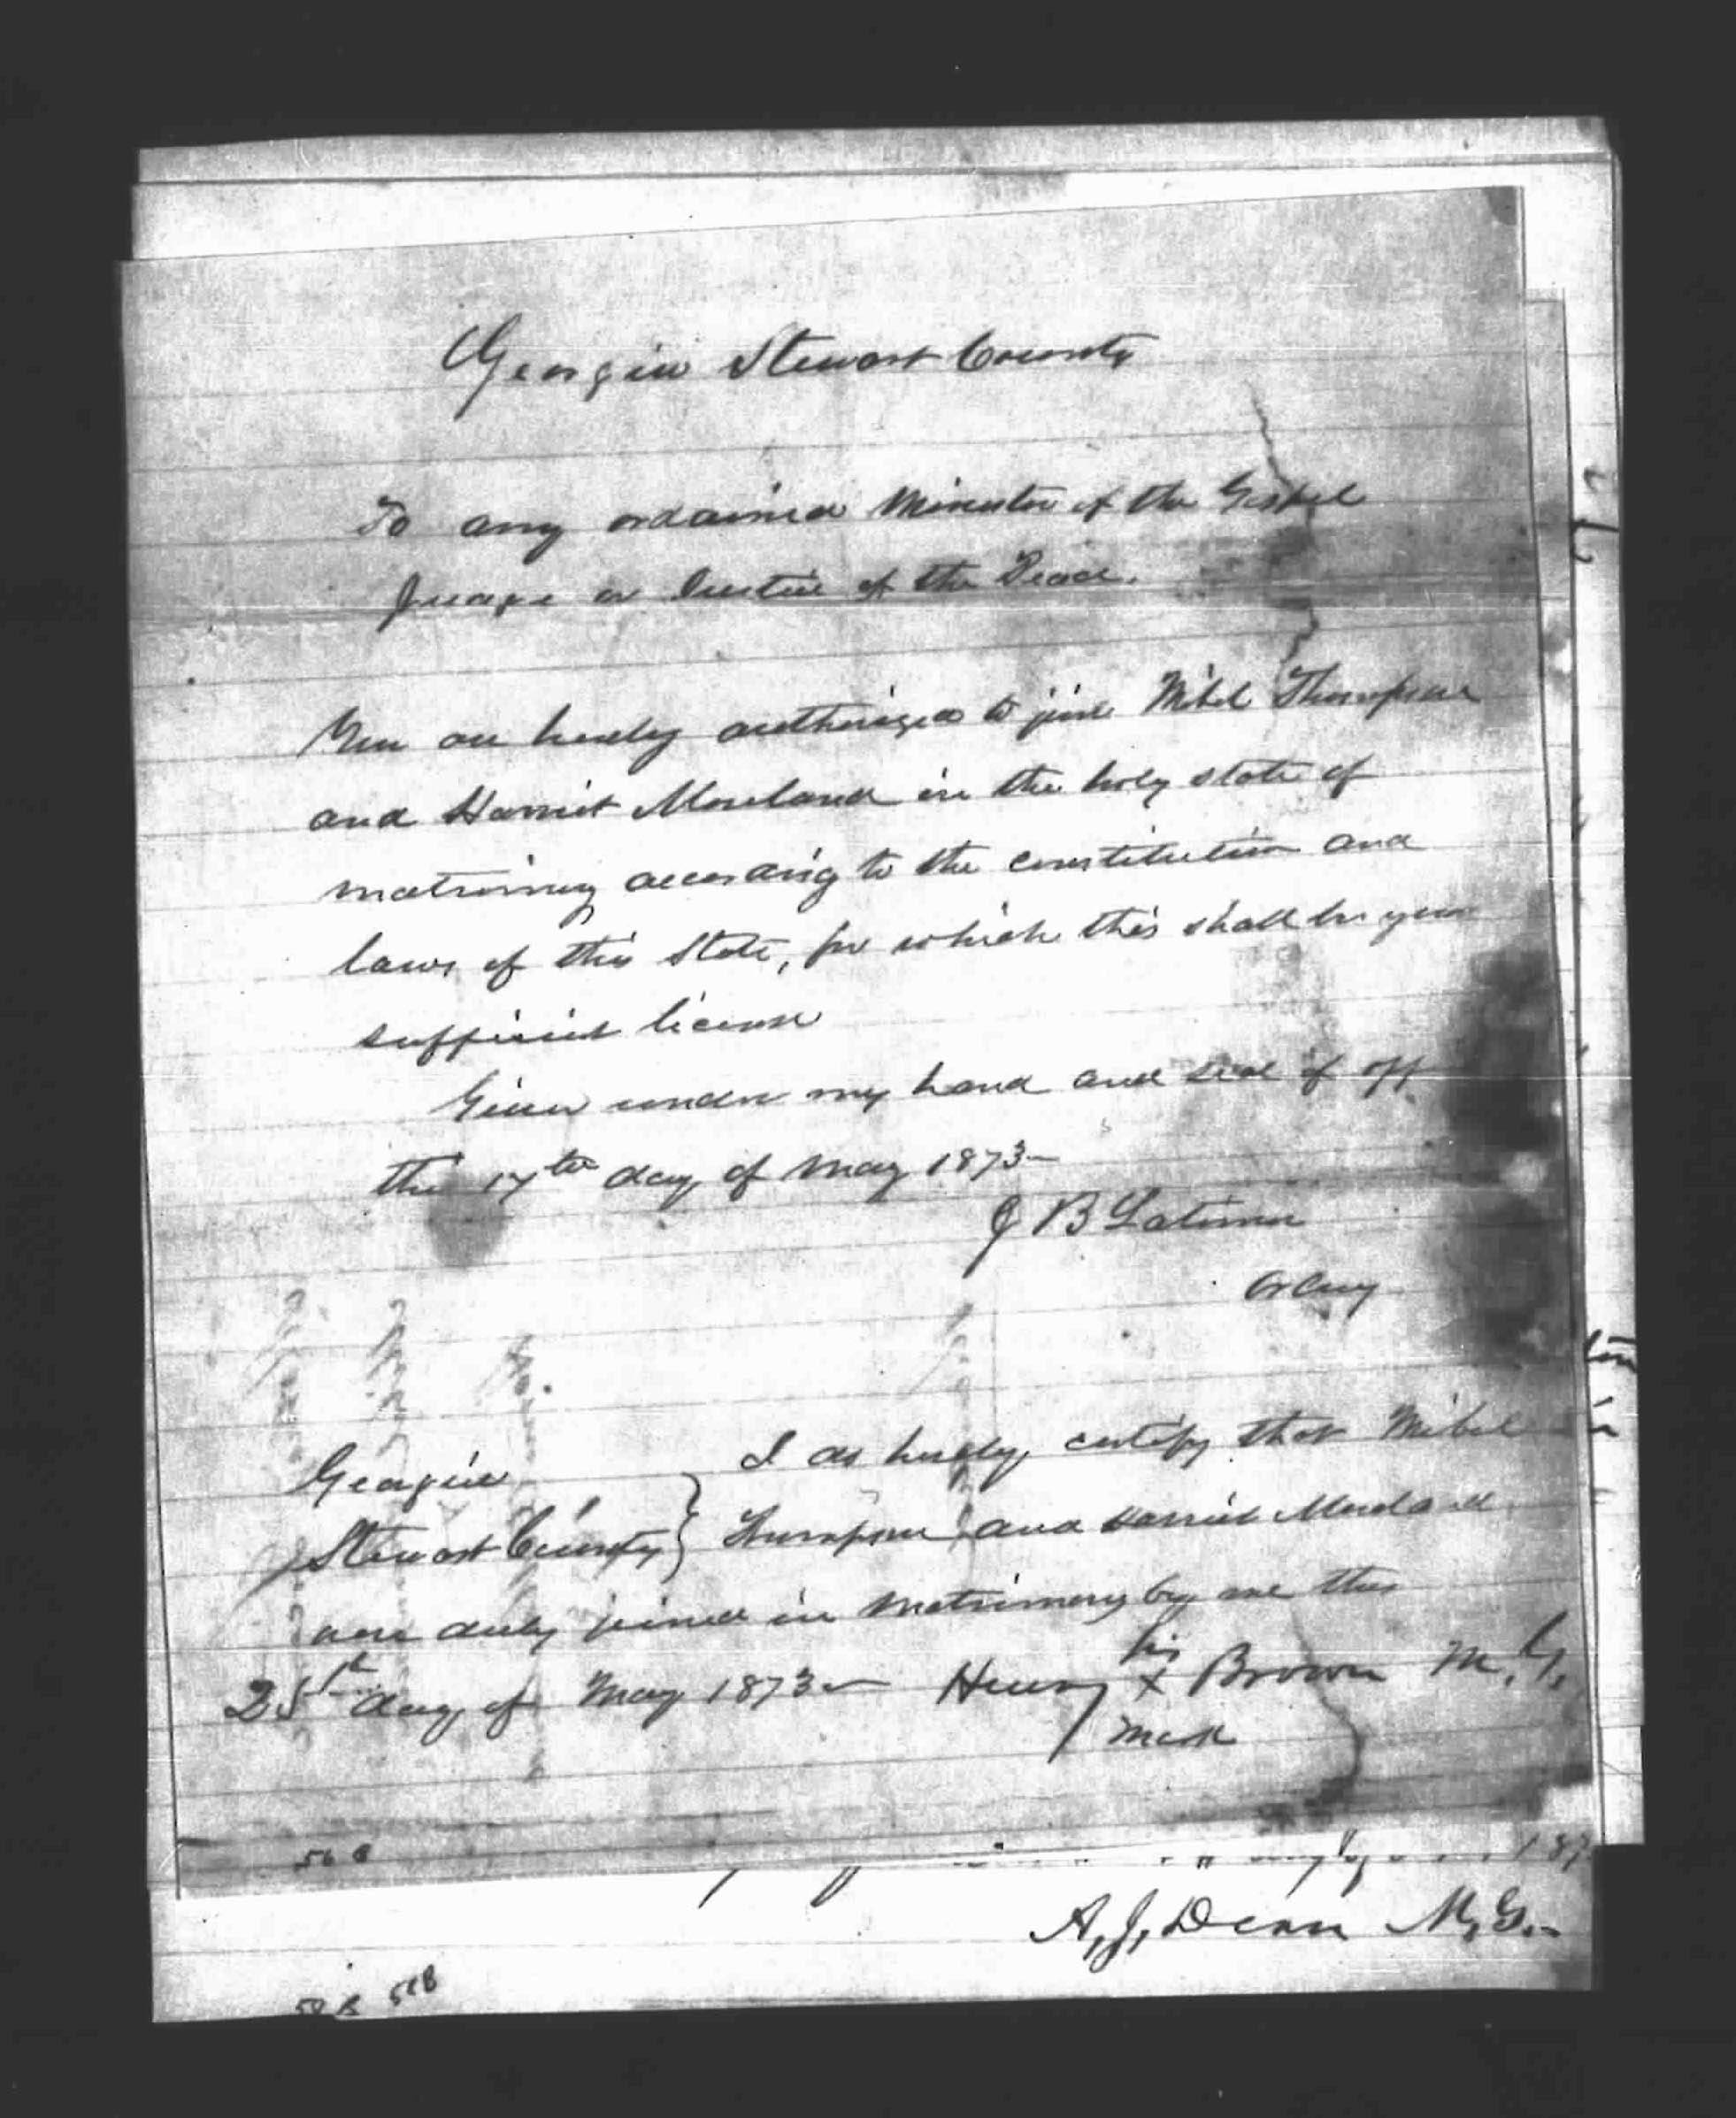 Georgia Stewart County
To any ordained Minister of the Gospel
Judge or Justice of the Peace.
You are hereby authorized to join Mitel Thompson
and Harriet Moreland in the holy state of
matrimony according to the constitution and
laws of this State, for which this shall be your
sufficient license
Given under my hand and seal of off
the 17th day of May 1873—
J B Latimer
Ordny
Georgia
Stewart County } I do hereby certify that Mitel
Thompson and Harriet Moreland
were duly joined in matrimony by me this
25th day of May 1873— Henry his x mark Brown M.G.
56 B
187
A, J, Dean M, G.—
58 B 57B